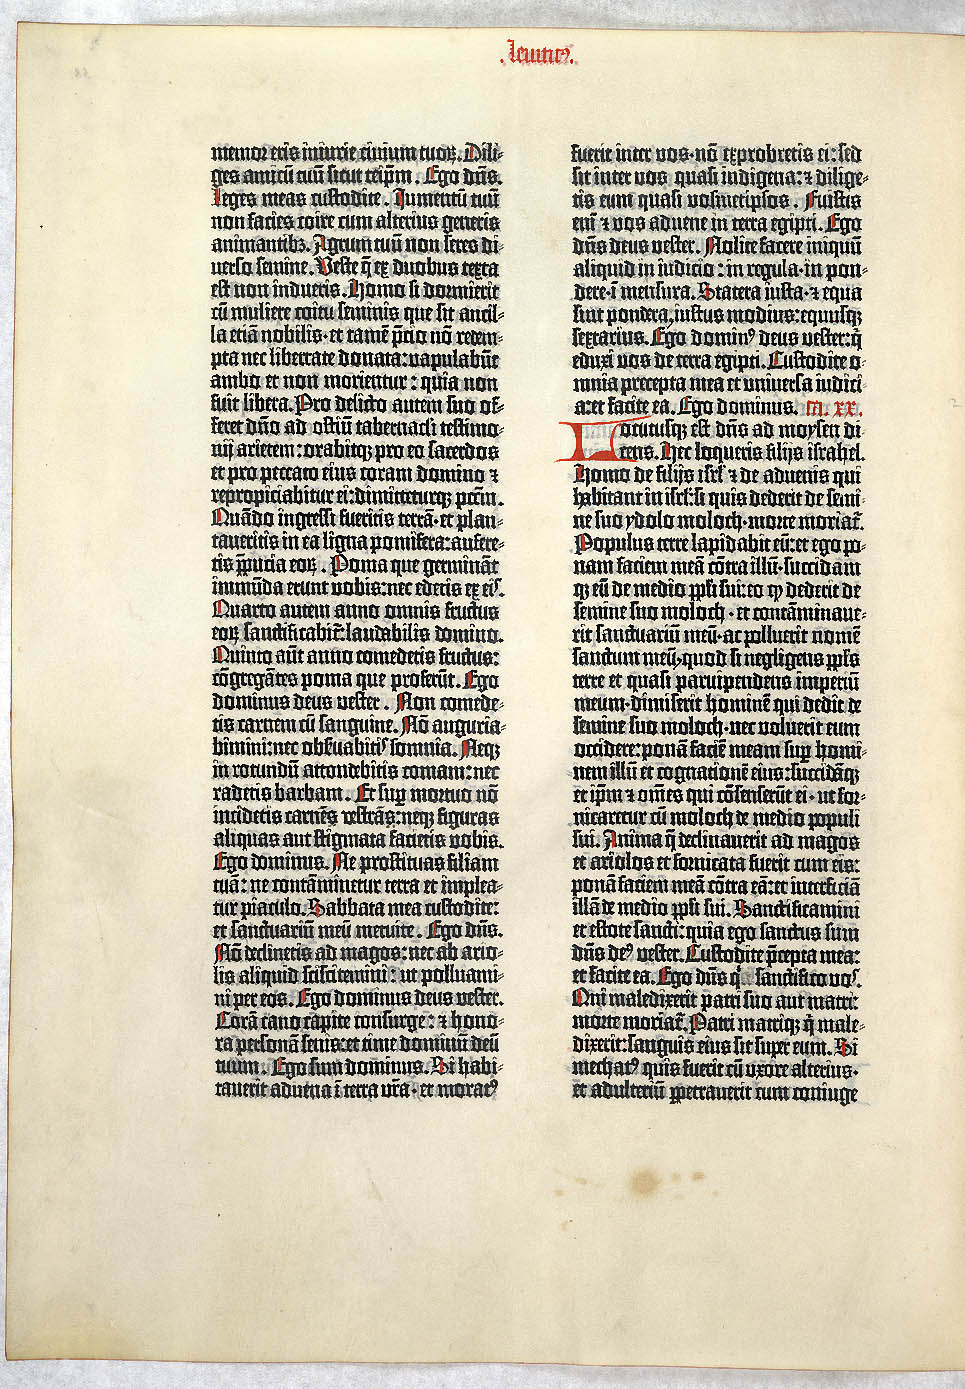 .leuitic9.
memor eris iniurie ciuium tuoꝝ. Dili-
ges amicū tuū sicut teip̄m. Ego dn̄s.
Leges meas custodite. Jumentū tuū
non facies coire cum alterius generis
animantibꝫ. Agrum tuū non seres di-
uerso semine. Veste q̄ ex duobus texta
est non indueris. Homo si dormierit
cū muliere coitu seminis que sit ancil-
la etiā nobilis · et tamē p̄cio nō redem-
pta nec libertate donata: vapulabūt
ambo et non morientur: quia non
fuit libera. Pro delicto autem suo of-
feret dn̄o ad ostiū tabernacli testimo-
nij arietem: orabitqꝫ pro eo sacerdos
et pro peccato eius coram domino ⁊
repropiciabitur ei: dimitteturqꝫ pctm̄.
Quādo ingressi fueritis terrā · et plan-
taueritis in ea ligna pomifera: aufere-
tis p̄putia eoꝝ. Poma que germināt
immūda erunt vobis: nec edetis ex eis.
Quarto autem anno omnis fructus
eoꝝ sanctificabit᷑: laudabilis domino.
Quinto aūt anno comedetis fructus:
cōgregātes poma que proferūt. Ego
dominus deus vester. Non comede-
tis carnem cū sanguine. Nō auguria-
bimini: nec obẜuabitis somnia. Neqꝫ
in rotundū attondebitis comam: nec
radetis barbam. Et suꝑ mortuo nō
incidetis carnes vestras: neqꝫ figuras
aliquas aut stigmata facietis vobis.
Ego dominus. Ne prostituas filiam
tuā: ne contāminetur terra et implea-
tur piaculo. Sabbata mea custodite:
et sanctuariū meū metuite. Ego dn̄s.
Nō declinetis ad magos: nec ab ario-
lis aliquid sciscitemini: ut polluami-
ni per eos. Ego dominus deus vester.
Corā cano capite consurge: ⁊ hono-
ra personā senis: et time dominū deū
tuum. Ego sum dominus. Si habi-
tauerit aduena ī terra vr̄a · et morat9
fuerit inter vos · nō exprobretis ei: sed
sit inter vos quasi indigena: ⁊ dilige-
tis eum quasi vosmetipsos. Fuistis
eni᷑ ⁊ vos aduene in terra egipti. Ego
dn̄s deus vester. Nolite facere iniquū
aliquid in iudicio: in regula · in pon-
dere · ī mensura. Statera iusta · ⁊ equa
sint pondera, iustus modius: equusqꝫ
sextarius. Ego domin9 deus vester: q̇
eduxi vos de terra egipti. Custodite o-
mnia precepta mea et uniuersa iudici-
a: et facite ea. Ego dominus. ca. xx.
Locutusqꝫ est dn̄s ad moysen di-
cens. Hec loqueris filijs israhel.
Homo de filijs isrl̄ ⁊ de aduenis qui
habitant in isrl̄: si quis dederit de semi-
ne suo ydolo moloch · morte moriat᷑.
Populus terre lapidabit eū: et ego po-
nam faciem meā cōtra illū · succidam
qꝫ eū de medio pp̄li sui: eo ꝙ dederit de
semine suo moloch · et contāminaue-
rit sanctuariū meū · ac polluerit nomē
sanctum meū · quod si negligens ppl̄s
terre et quasi paruipendens imperiū
meum · dimiserit hominē qui dedit de
semine suo moloch · nec voluerit eum
occidere: ponā faciē meam suꝑ homi-
nem illū et cognationē eius: succidāqꝫ
et ip̄m ⁊ om̄es qui cōsenserūt ei · ut for-
nicaretur cū moloch de medio populi
sui. Anima q̄ declinauerit ad magos
et ariolos et fornicata fuerit cum eis:
ponā faciem meā cōtra eā: et interficiā
illā de medio pp̄li sui. Sanctificamini
et estote sancti: quia ego sanctus sum
dn̄s de9 vester. Custodite p̄cepta mea:
et facite ea. Ego dn̄s q̇ sanctifico vos.
Qui maledixerit patri suo aut matri:
morte moriat᷑. Patri matriqꝫ q̇ male-
dixerit: sanguis eius sit super eum. Si
mechat9 quis fuerit cū uxore alterius ·
et adulteriū ꝑpetrauerit cum coniuge